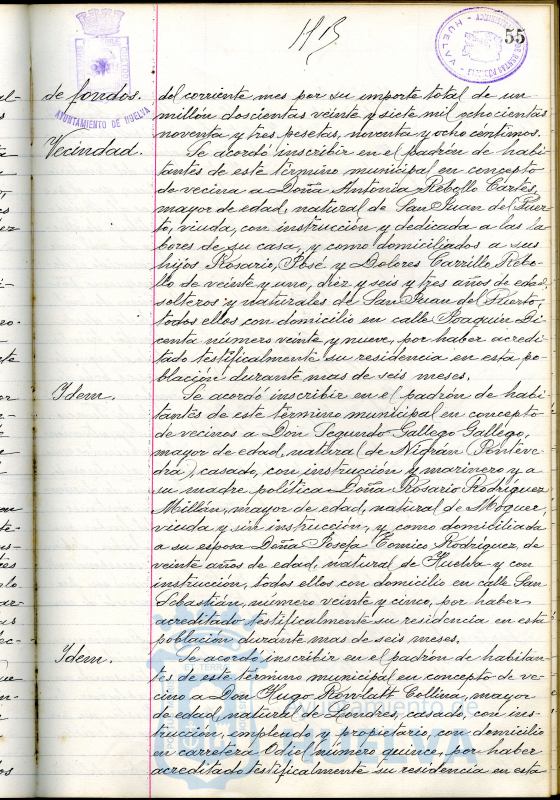 55
HUELVA
AYUNTAMIENTO DE HUELVA
de fondos.
del corriente mes por su importe total de un
millón doscientas veinte y siete mil ochocientas
noventa y tres pesetas, noventa y ocho céntimos.
Vecindad.
Se acordó inscribir en el padrón de habi-
tantes de este término municipal en concepto
de vecina a Doña Antonia Rebollo Cartés,
mayor de edad, natural de San Juan del Puer-
to, viuda, con instrucción y dedicada a las la-
bores de su casa, y como domiciliados a sus
hijos Rosario, José y Dolores Carrillo Rebo-
llo de veinte y uno, diez y seis y tres años de edad,
solteros y naturales de San Juan del Puerto,
todos ellos con domicilio en calle Joaquín Di-
centa número veinte y nueve, por haber acredi-
tado testificalmente su residencia en esta po-
blación durante mas de seis meses.
Idem.
Se acordó inscribir en el padrón de habi-
tantes de este término municipal en concepto
de vecinos a Don Segundo Gallego Gallego,
mayor de edad, natural de Nigrán (Ponteve-
dra), casado, con instrucción y marinero y a
su madre política Doña Rosario Rodríguez
Millán, mayor de edad, natural de Moguer,
viuda y sin instrucción, y como domiciliada
a su esposa Doña Josefa Comico Rodríguez, de
veinte años de edad, natural de Huelva y con
instrucción, todos ellos con domicilio en calle San
Sebastián, número veinte y cinco, por haber
acreditado testificalmente su residencia en esta
población durante mas de seis meses.
Idem.
Se acordó inscribir en el padrón de habitan-
tes de este término municipal en concepto de ve-
cino a Don Hugo Rowlatt Collina, mayor
de edad, natural de Londres, casado, con ins-
trucción, empleado y propietario, con domicilio
en carretera Odiel número quince, por haber
acreditado testificalmente su residencia en esta
Ayuntamiento de
HUELVA